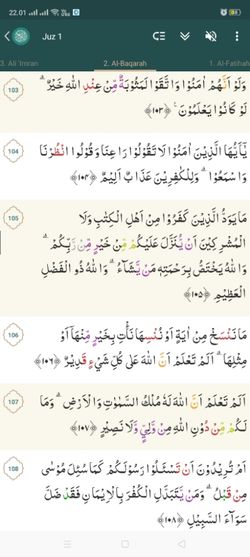 22.01
Juz 1
3. Ali 'Imran 2. Al-Baqarah 1. Al-Fatihah
103
وَلَوْ اَنَّهُمْ اٰمَنُوْا وَاتَّقَوْا لَمَثُوْبَةٌ مِّنْ عِنْدِ اللّٰهِ خَيْرٌ ۗ
لَوْ كَانُوْا يَعْلَمُوْنَ ࣖ ﴿١٠٣﴾
104
يٰٓاَيُّهَا الَّذِيْنَ اٰمَنُوْا لَا تَقُوْلُوْا رَاعِنَا وَقُوْلُوا انْظُرْنَا
وَاسْمَعُوْا ۗ وَلِلْكٰفِرِيْنَ عَذَابٌ اَلِيْمٌ ﴿١٠٤﴾
105
مَا يَوَدُّ الَّذِيْنَ كَفَرُوْا مِنْ اَهْلِ الْكِتٰبِ وَلَا
الْمُشْرِكِيْنَ اَنْ يُّنَزَّلَ عَلَيْكُمْ مِّنْ خَيْرٍ مِّنْ رَّبِّكُمْ ۗ
وَاللّٰهُ يَخْتَصُّ بِرَحْمَتِهٖ مَنْ يَّشَاۤءُ ۗ وَاللّٰهُ ذُو الْفَضْلِ
الْعَظِيْمِ ﴿١٠٥﴾
106
مَا نَنْسَخْ مِنْ اٰيَةٍ اَوْ نُنْسِهَا نَأْتِ بِخَيْرٍ مِّنْهَآ اَوْ
مِثْلِهَا ۗ اَلَمْ تَعْلَمْ اَنَّ اللّٰهَ عَلٰى كُلِّ شَيْءٍ قَدِيْرٌ ﴿١٠٦﴾
107
اَلَمْ تَعْلَمْ اَنَّ اللّٰهَ لَهٗ مُلْكُ السَّمٰوٰتِ وَالْاَرْضِ ۗ وَمَا
لَكُمْ مِّنْ دُوْنِ اللّٰهِ مِنْ وَّلِيٍّ وَّلَا نَصِيْرٍ ﴿١٠٧﴾
108
اَمْ تُرِيْدُوْنَ اَنْ تَسْـَٔلُوْا رَسُوْلَكُمْ كَمَا سُىِٕلَ مُوْسٰى
مِنْ قَبْلُ ۗ وَمَنْ يَّتَبَدَّلِ الْكُفْرَ بِالْاِيْمَانِ فَقَدْ ضَلَّ
سَوَاۤءَ السَّبِيْلِ ﴿١٠٨﴾